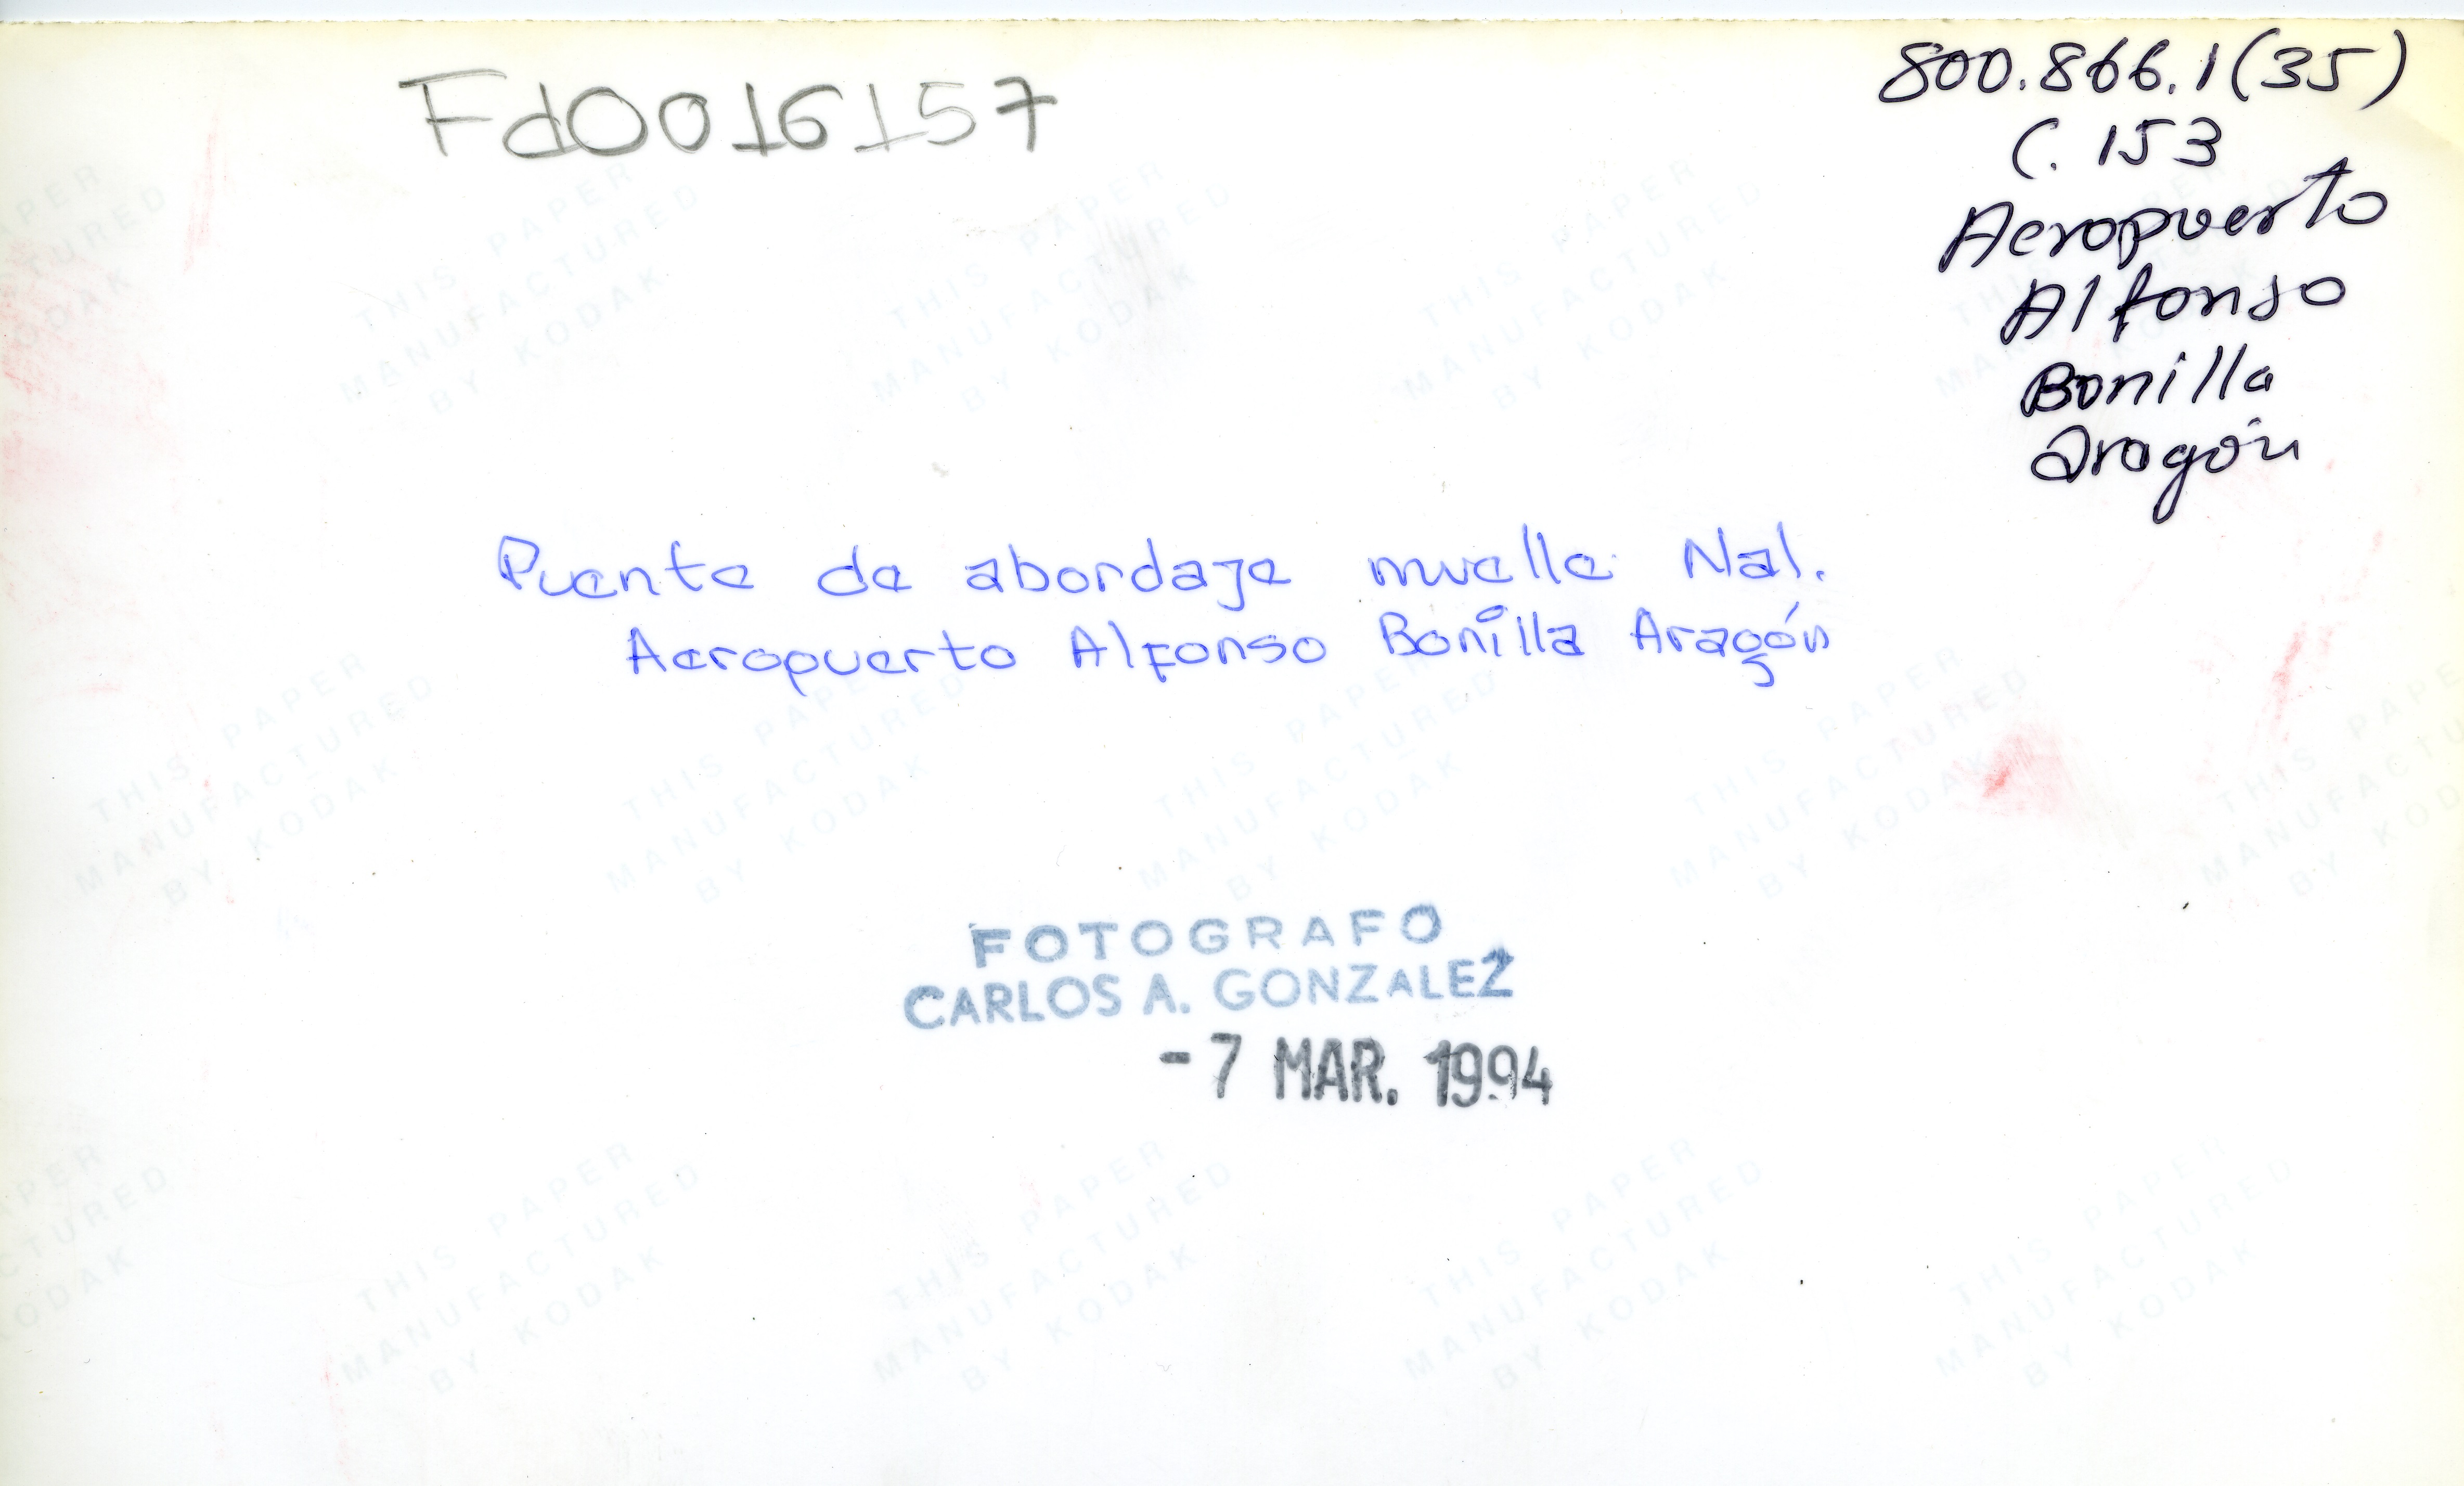 Fd0016157
800.866.1(35)
C. 153
Aeropuerto
Alfonso
Bonilla
Aragón
Puente de abordaje muelle Nal.
Aeropuerto Alfonso Bonilla Aragón
FOTOGRAFO
CARLOS A. GONZALEZ
-7 MAR. 1994
THIS PAPER
MANUFACTURED
BY KODAK